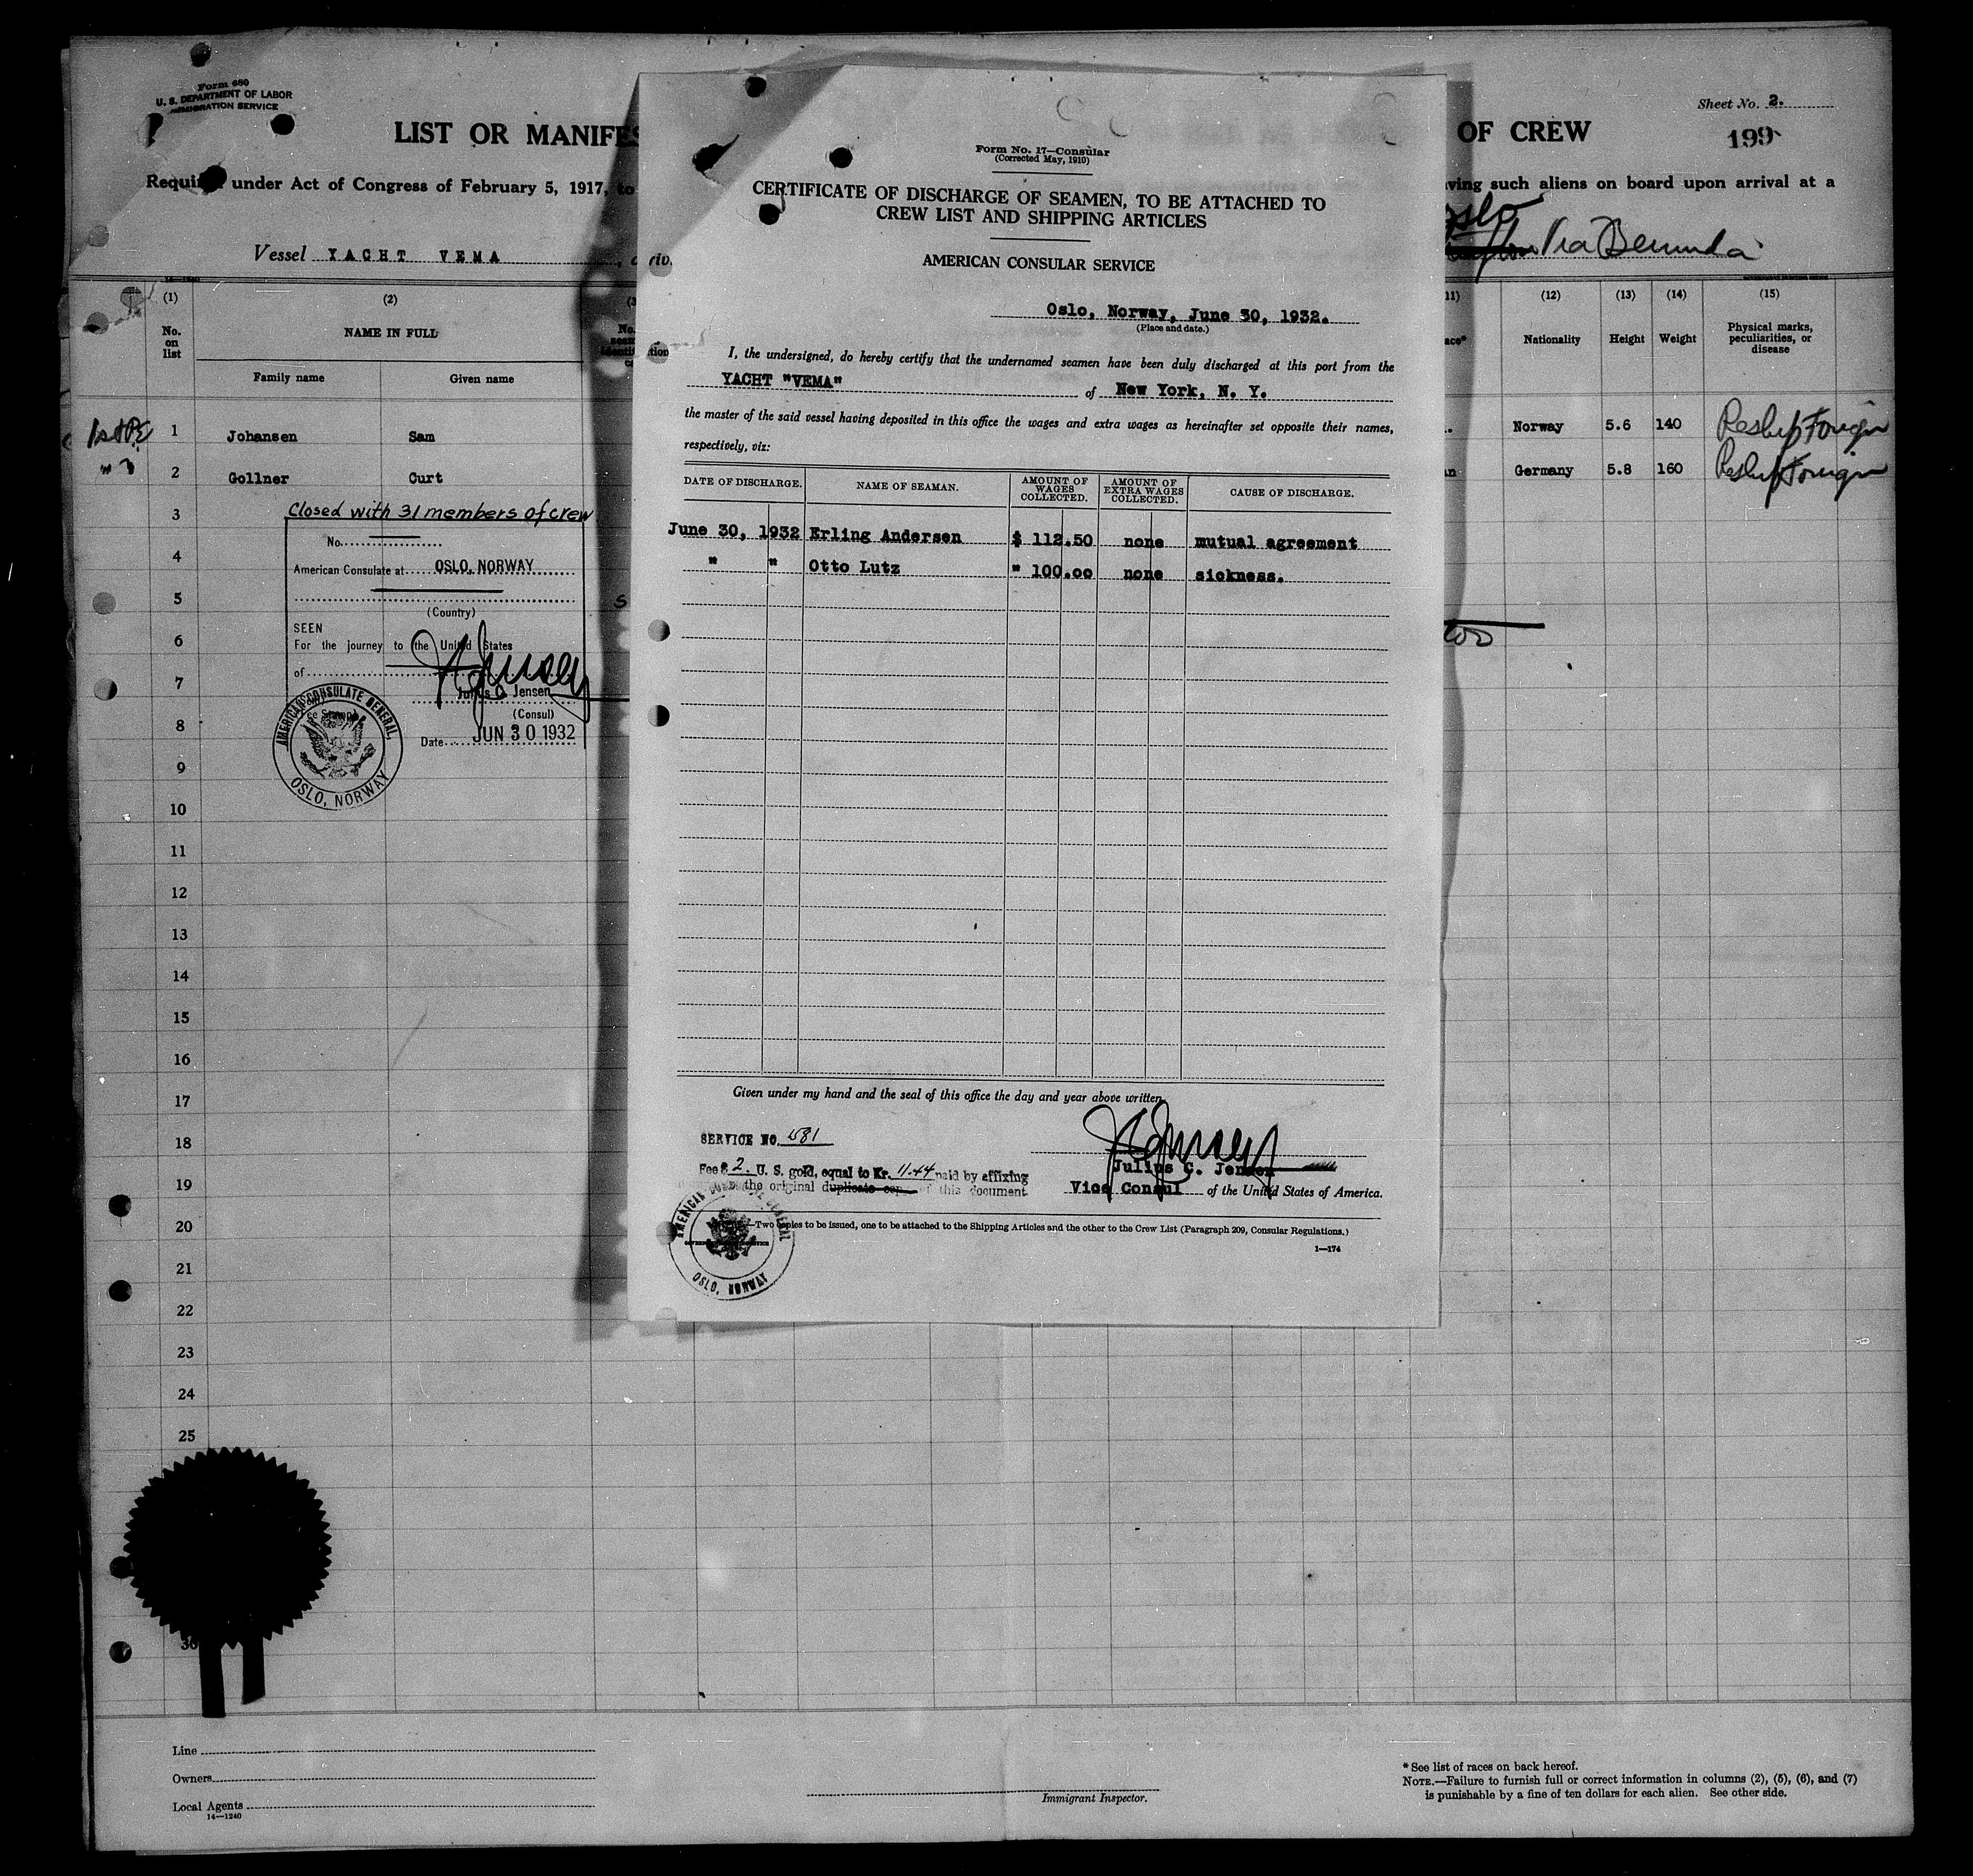 Form 680
U. S. DEPARTMENT OF LABOR
IMMIGRATION SERVICE
LIST OR MANIFES
OF CREW
Sheet No. 2.
199
Requir under Act of Congress of February 5, 1917, to
ving such aliens on board upon arrival at a
Vessel YACHT VEMA
, arriv.
Oslo
Via Bermuda
(1)
(2)
11)
(12)
(13)
(14)
(15)
No. on list
NAME IN FULL
Family name
Given name
ace*
Nationality
Height
Weight
Physical marks, peculiarities, or disease
1 Johansen Sam
Norway 5.6 140 Reship Foreign
2 Gollner Curt
n Germany 5.8 160 Reship Foreign
Closed with 31 members of crew
3
4
5
6
7
8
9
10
11
12
13
14
15
16
17
18
19
20
21
22
23
24
25
30
No.
American Consulate at OSLO, NORWAY
(Country)
SEEN
For the journey to the United States
of
Julius C. Jensen
(Consul)
Date JUN 30 1932
AMERICAN CONSULATE GENERAL,
OSLO, NORWAY
Form No. 17—Consular
(Corrected May, 1910)
CERTIFICATE OF DISCHARGE OF SEAMEN, TO BE ATTACHED TO
CREW LIST AND SHIPPING ARTICLES
AMERICAN CONSULAR SERVICE
Oslo, Norway, June 30, 1932.
(Place and date.)
I, the undersigned, do hereby certify that the undernamed seamen have been duly discharged at this port from the
YACHT "VEMA" of New York, N. Y.
the master of the said vessel having deposited in this office the wages and extra wages as hereinafter set opposite their names,
respectively, viz:
DATE OF DISCHARGE. NAME OF SEAMAN. AMOUNT OF WAGES COLLECTED. AMOUNT OF EXTRA WAGES COLLECTED. CAUSE OF DISCHARGE.
June 30, 1932 Erling Andersen $ 112.50 none mutual agreement
" " Otto Lutz " 100.00 none sickness.
Given under my hand and the seal of this office the day and year above written.
SERVICE NO. 581
Fee $ 2. U. S. gold, equal to Kr. 11.44 paid by affixing
the original duplicate copy of this document
Julius C. Jensen
Vice Consul of the United States of America.
Two copies to be issued, one to be attached to the Shipping Articles and the other to the Crew List (Paragraph 209, Consular Regulations.)
1—174
AMERICAN CONSULATE GENERAL
OSLO, NORWAY
Line
Owners
Local Agents
14—1240
Immigrant Inspector.
* See list of races on back hereof.
NOTE.—Failure to furnish full or correct information in columns (2), (5), (6), and (7)
is punishable by a fine of ten dollars for each alien. See other side.